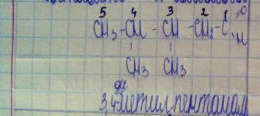 5 4 3 2 1 O
CH₃-CH - CH - CH₂-C H
CH₃ CH₃
3,4диметилпентаналь